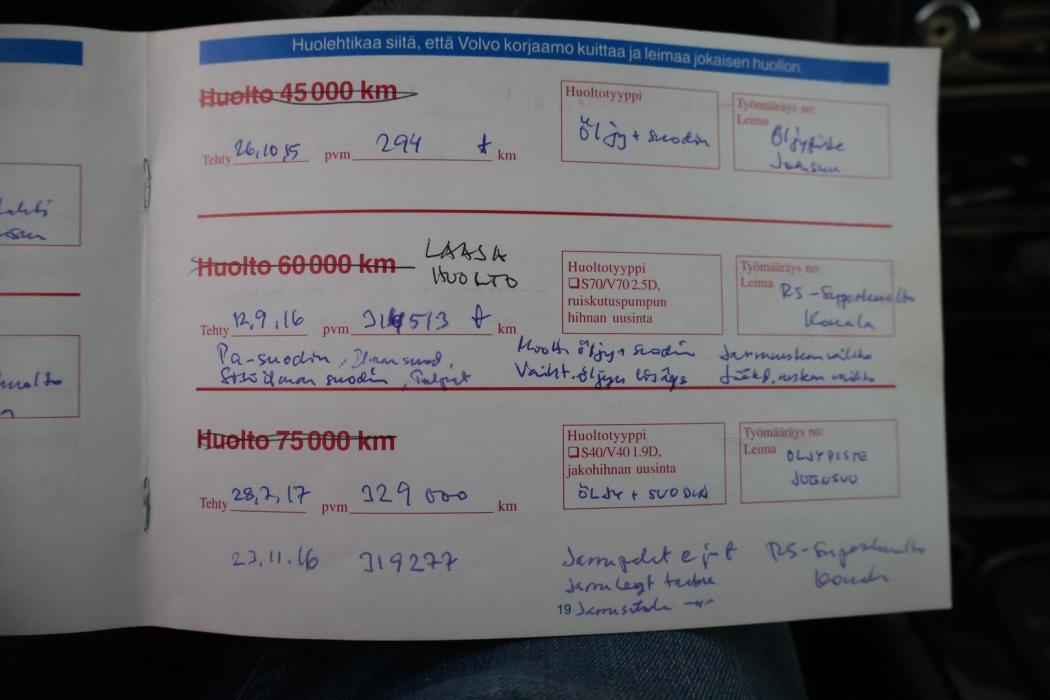 Huolehtikaa siitä, että Volvo korjaamo kuittaa ja leimaa jokaisen huollon
Huolto 45 000 km
Tehty 26,10,15 pvm 294 t km
Huoltotyyppi
Öljy + suodin
Työmääräys no:
Leima
Öljypiste
Joensuu
Huolto 60 000 km
LAAJA
HUOLTO
Tehty 12,9,16 pvm km
Huoltotyyppi
❑S70/V70 2.5D,
ruiskutuspumpun
hihnan uusinta
Työmääräys no:
Leima RS-Superhuolto
Konala
Pa-suodin, Ilmansuod,
Sisäilman suodin, Tulpat
Moott. öljy + suodin
Vaiht. öljyn lisäys
Jarrunesteen vaihto
Jäähd. nesteen vaihto
Huolto 75 000 km
Tehty 28,7,17 pvm 329 000 km
Huoltotyyppi
❑S40/V40 1.9D,
jakohihnan uusinta
ÖLJY + SUODIN
Työmääräys no:
Leima ÖLJYPISTE
JOENSUU
23.11.16 319277
Jarrupalat e ja t
RS-Superhuolto
Konala
19